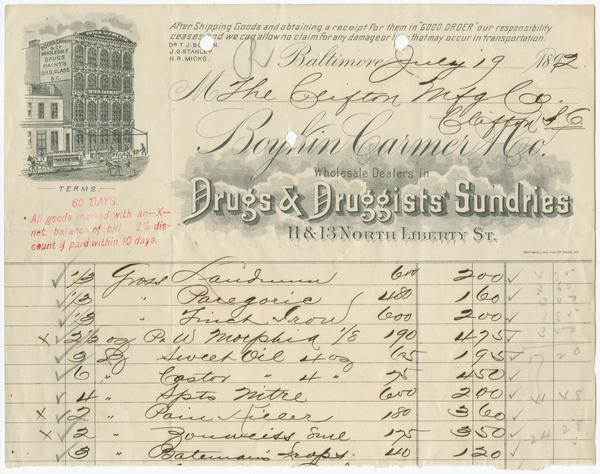 After Shipping Goods and obtaining a receipt for them in "GOOD ORDER" our responsibility
ceases and we can allow no claim for any damage or loss that may occur in transportation.
DR T. J. BOYKIN,
J. G. STANLEY,
H. R. MICKS.
Baltimore July 19 1892
M The Clifton Mfg Co.
Clifton SC
Boykin Carmer & Co.
Wholesale Dealers in
Drugs & Druggists' Sundries
11 & 13 NORTH LIBERTY ST.
BOYKIN, CARMER & CO
WHOLESALE
DRUGS
PAINTS
OILS, GLASS
&C.
TERMS:
60 DAYS.
All goods marked with an -X-
net balance of bill 2% dis-
count if paid within 10 days.
✓ 1/3 Gross Laudnum 600 200 ✓
✓ 1/3 " Paregoric 480 160 ✓
✓ 1/3 " Tinct Iron 600 200 ✓
X ✓ 2 1/2 oz P & W Morphia 1/8 190 475 ✓
✓ 3 Dz Sweet Oil 4 oz 65 195 ✓ 17 20
✓ 6 " Castor " 4 " 75 450 ✓
✓ 4 " Spts Nitre 600 200 ✓
X ✓ 2 " Pain Killer 180 360 ✓
X ✓ 2 " 175 350 ✓ 24 28
✓ 3 " Bateman's Drops 40 120 ✓